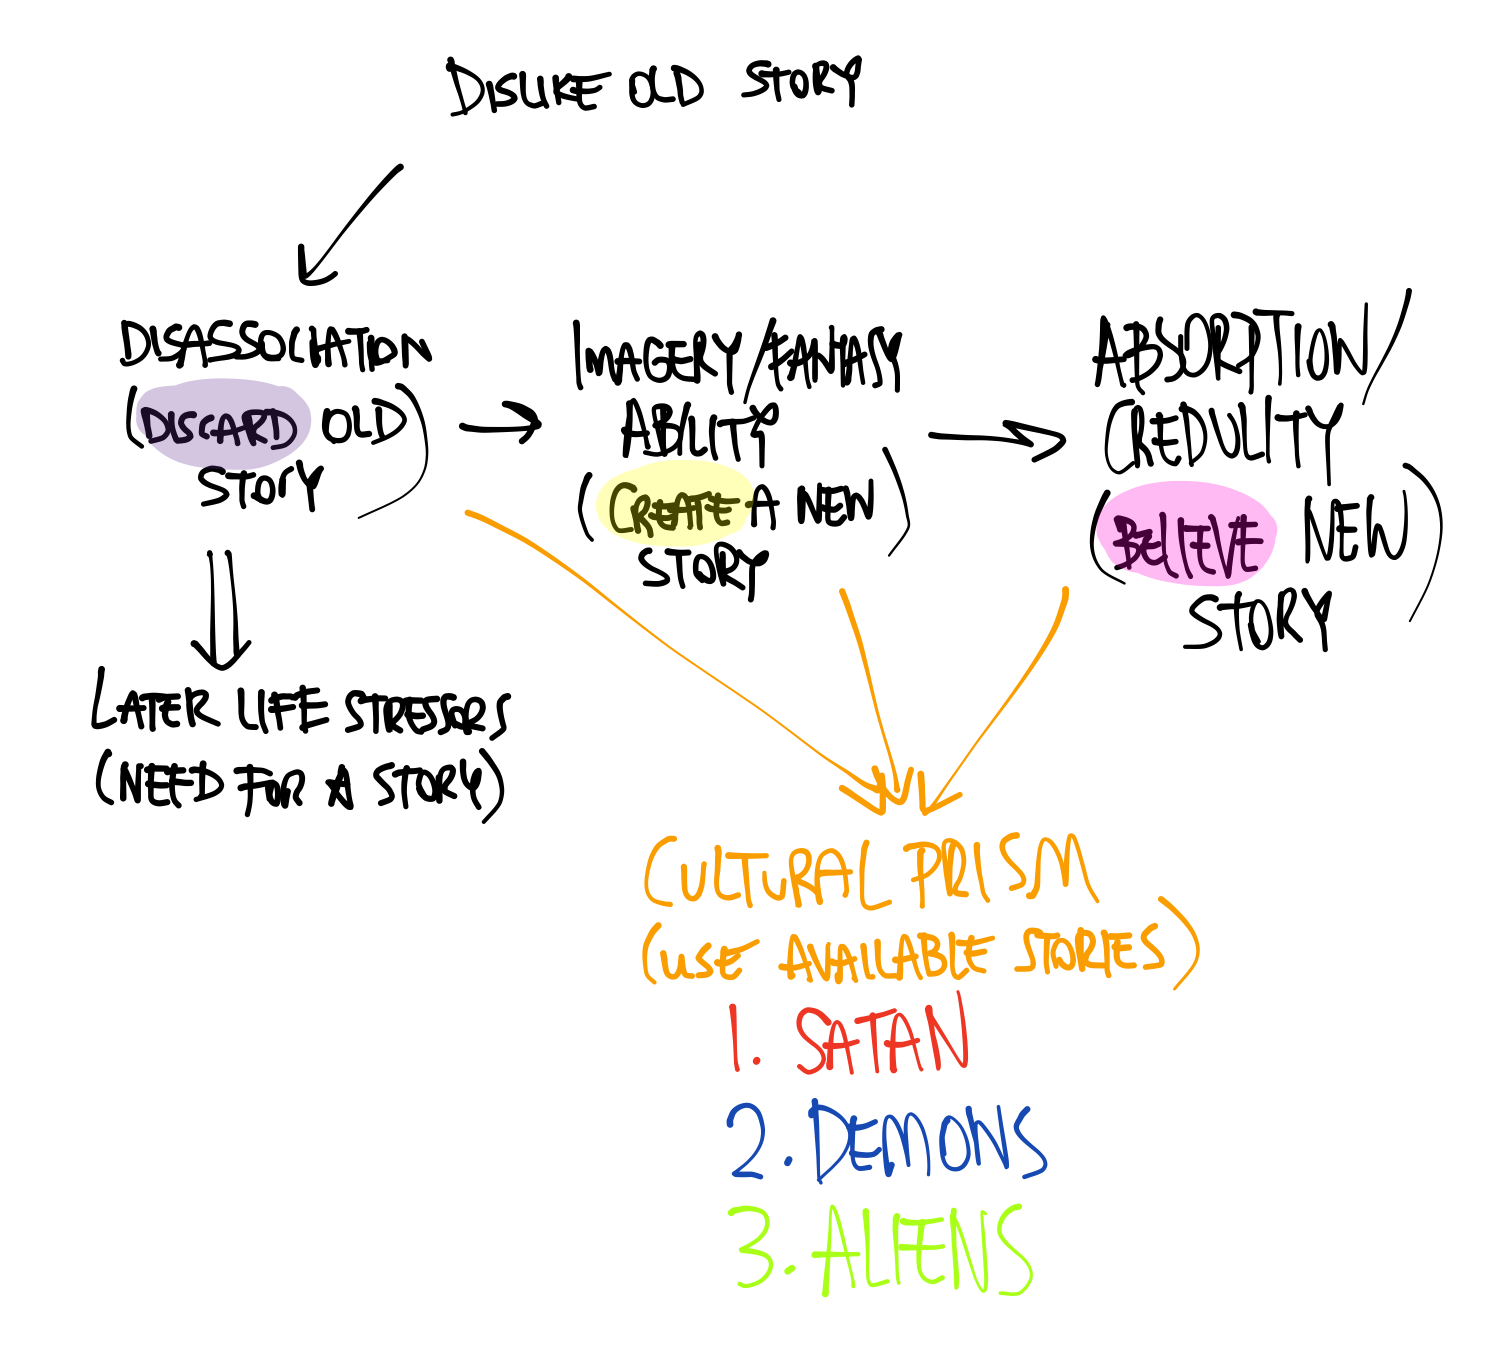 DISLIKE OLD STORY
DISASSOCIATION
(DISCARD OLD
STORY)
IMAGERY/FANTASY
ABILITY
(CREATE A NEW
STORY)
ABSORPTION/
CREDULITY
(BELIEVE NEW
STORY)
LATER LIFE STRESSORS
(NEED FOR A STORY)
CULTURAL PRISM
(USE AVAILABLE STORIES)
1. SATAN
2. DEMONS
3. ALIENS